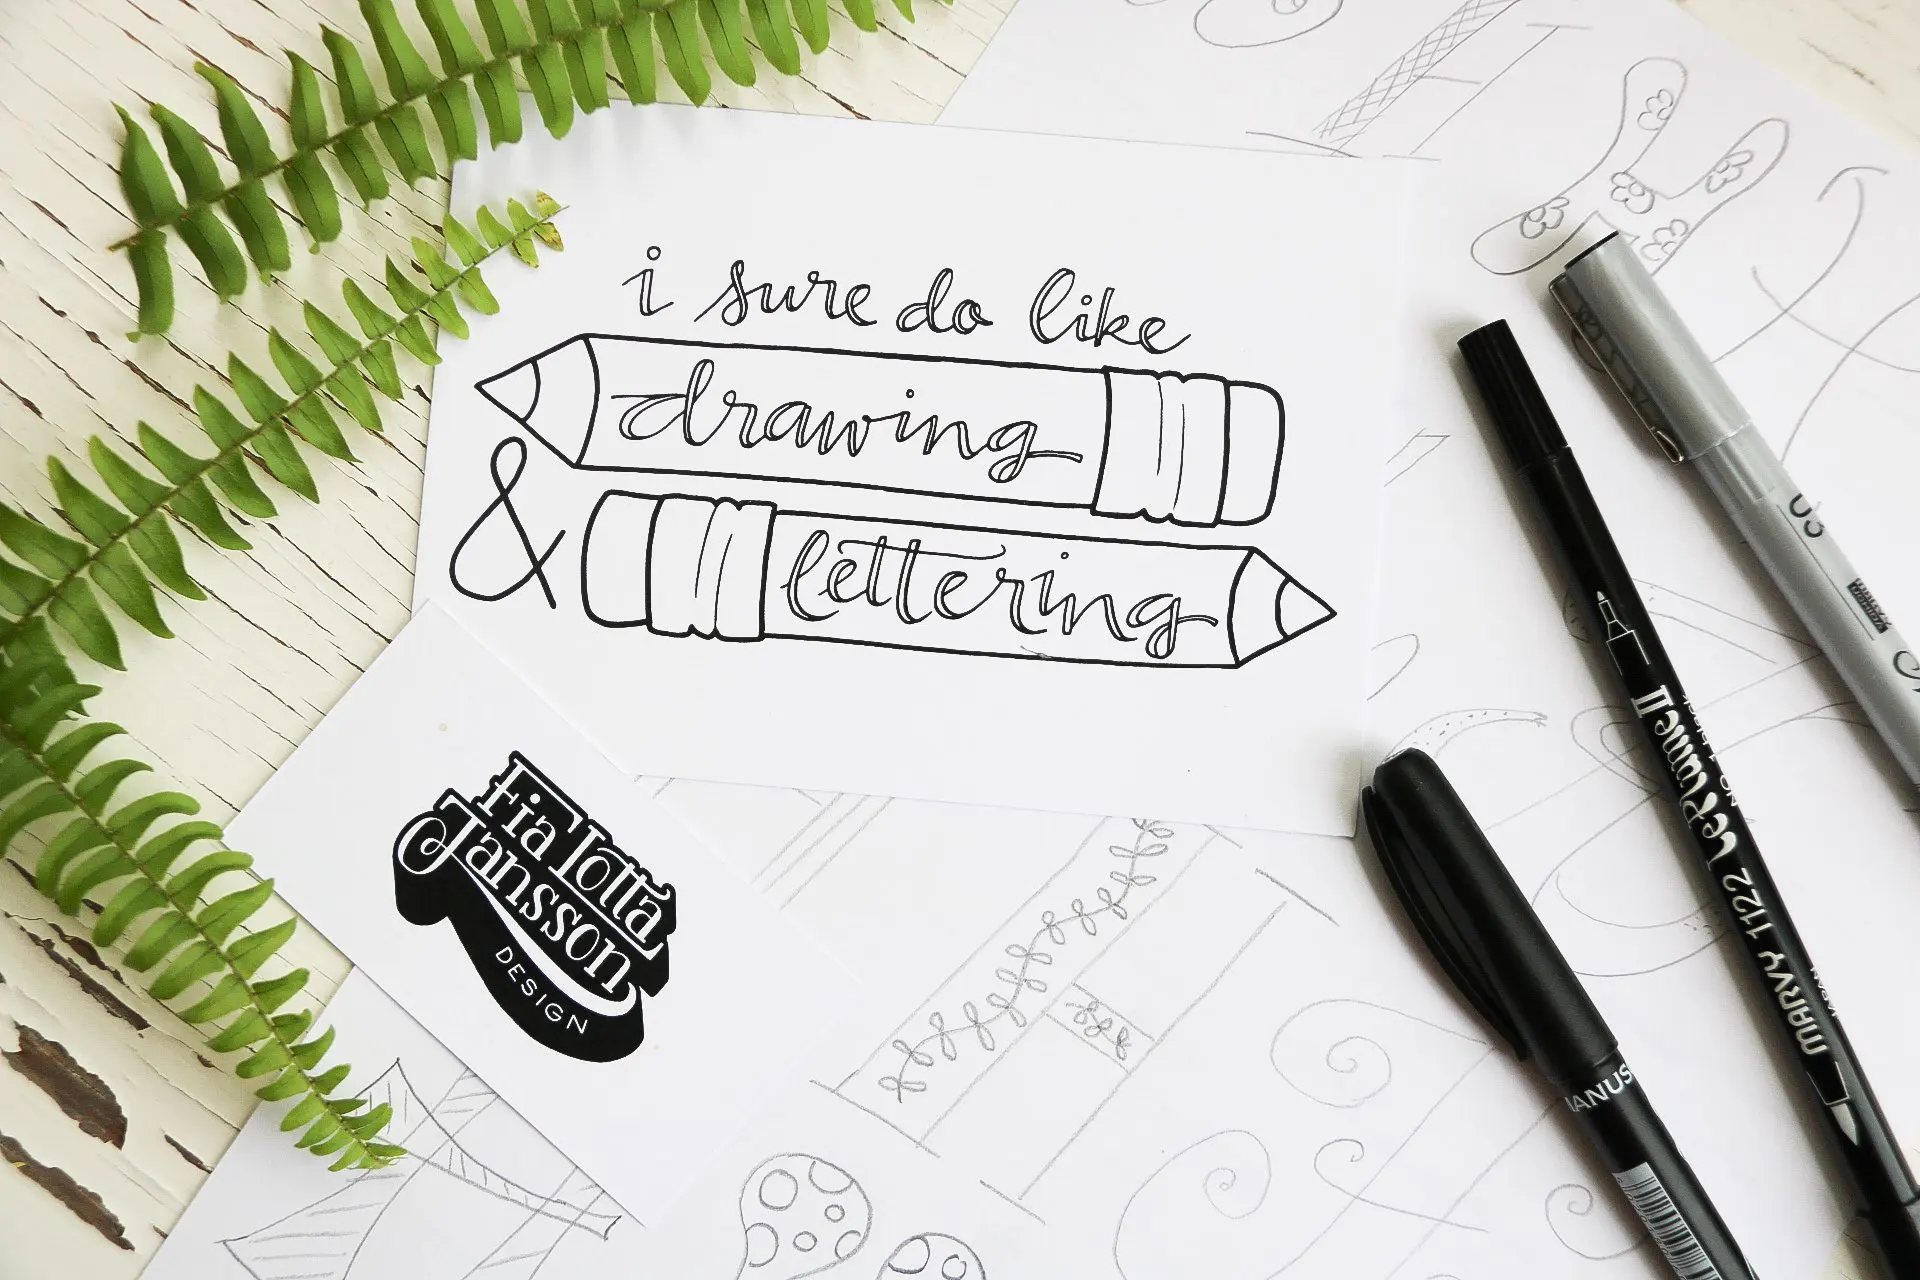 i sure do like
drawing
&
lettering
Fia Lotta
Jansson
DESIGN
03
MARVY 1122 LePlume II
JAPAN